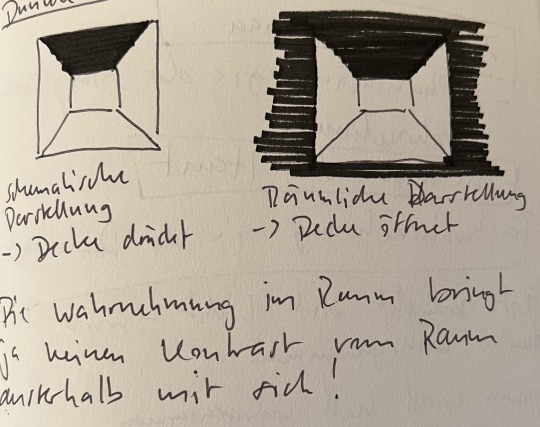 schematische
Darstellung
-> Decke drückt
Räumliche Darstellung
-> Decke öffnet
Die Wahrnehmung im Raum bringt
ja keinen Kontrast vom Raum
ausserhalb mit sich!